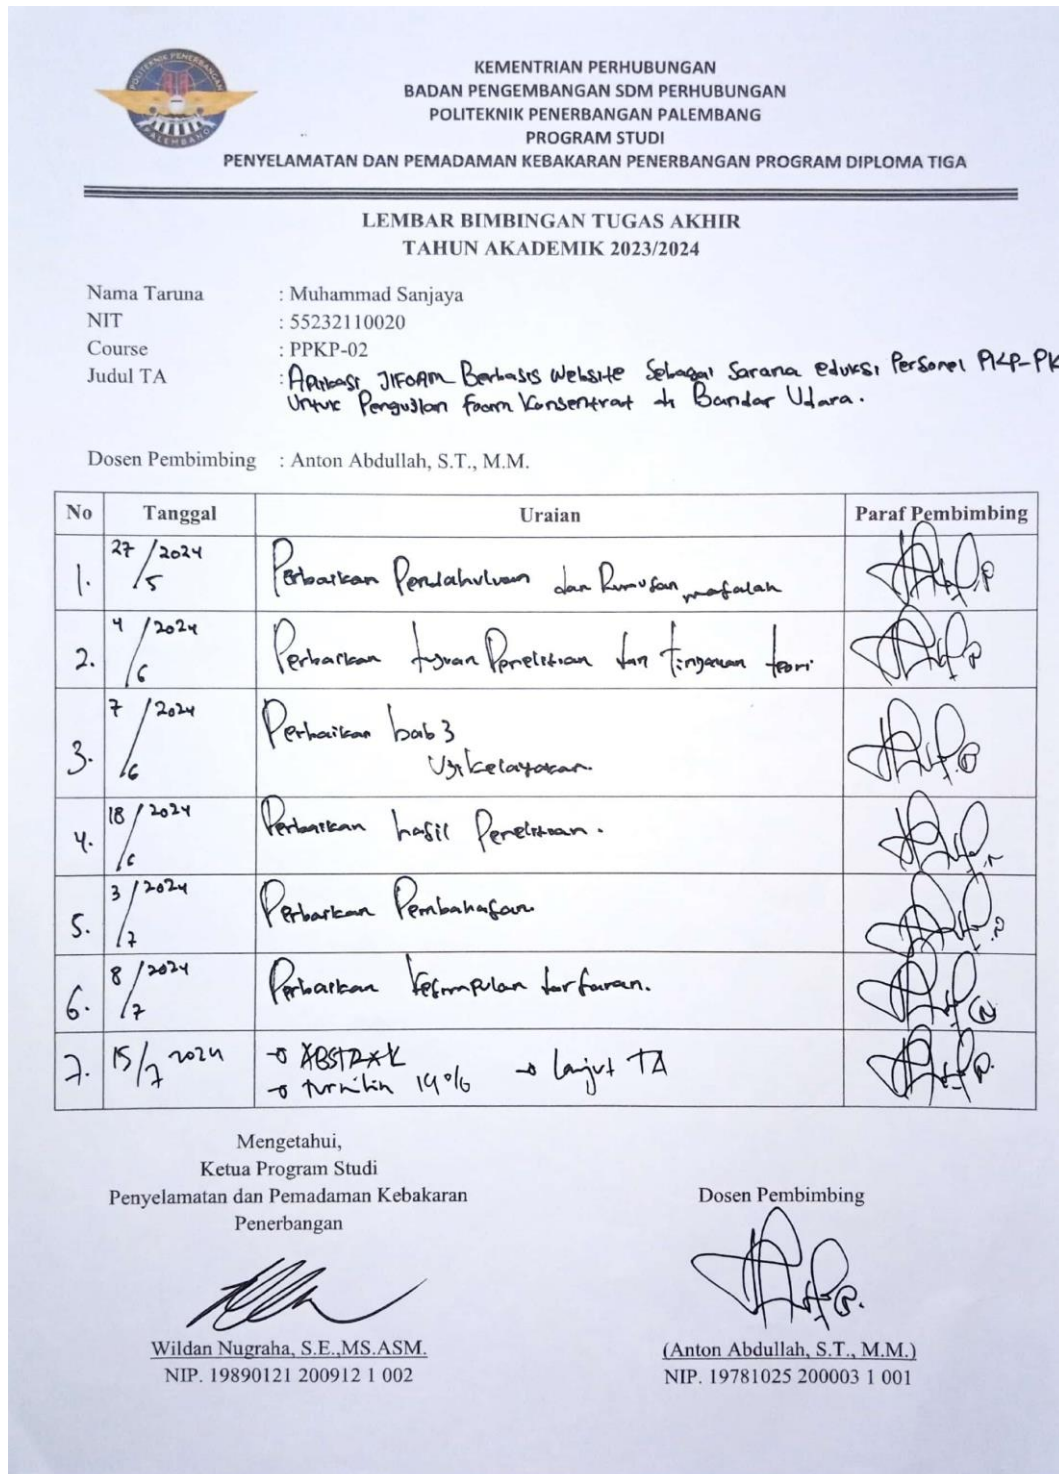 POLITEKNIK PENERBANGAN
PALEMBANG
KEMENTRIAN PERHUBUNGAN
BADAN PENGEMBANGAN SDM PERHUBUNGAN
POLITEKNIK PENERBANGAN PALEMBANG
PROGRAM STUDI
PENYELAMATAN DAN PEMADAMAN KEBAKARAN PENERBANGAN PROGRAM DIPLOMA TIGA
LEMBAR BIMBINGAN TUGAS AKHIR
TAHUN AKADEMIK 2023/2024
Nama Taruna : Muhammad Sanjaya
NIT : 55232110020
Course : PPKP-02
Judul TA : Aplikasi JIFOAM Berbasis Website Sebagai Sarana eduksi Personel PKP-PK
Untuk Pengujian foam Konsentrat di Bandar Udara.
Dosen Pembimbing : Anton Abdullah, S.T., M.M.
No Tanggal Uraian Paraf Pembimbing
1. 27/5/2024 Perbaikan Pendahuluan dan Rumusan masalah
2. 4/6/2024 Perbaikan tujuan Penelitian dan tinjauan teori
3. 7/6/2024 Perbaikan bab 3
Uji kelayakan.
4. 18/6/2024 Perbaikan hasil Penelitian.
5. 3/7/2024 Perbaikan Pembahasan
6. 8/7/2024 Perbaikan kesimpulan dan saran.
7. 15/7 2024 → ABSTRAK
→ turnitin 19% → lanjut TA
Mengetahui,
Ketua Program Studi
Penyelamatan dan Pemadaman Kebakaran
Penerbangan
Dosen Pembimbing
Wildan Nugraha, S.E.,MS.ASM.
NIP. 19890121 200912 1 002
(Anton Abdullah, S.T., M.M.)
NIP. 19781025 200003 1 001